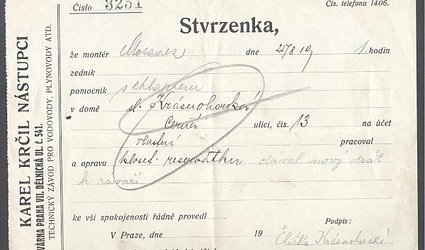 Číslo 3251
Čís. telefonu 1406.
Stvrzenka,
že montér dne 25/8 19 1. hodin
zedník
pomocník s chlapcem
v domě sl. Krásnohorská
Černá ulici, čís. 13 na účet
vlastní pracoval
a opravu dával nový drát
k
ke vší spokojenosti řádně provedl
V Praze, dne 19 Podpis:
Eliška Krásnohorská
KAREL KRČIL NÁSTUPCI
TOVÁRNA PRAHA VII. DĚLNICKÁ UL. č. 541.
TECHNICKÝ ZÁVOD PRO VODOVODY, PLYNOVODY ATD.